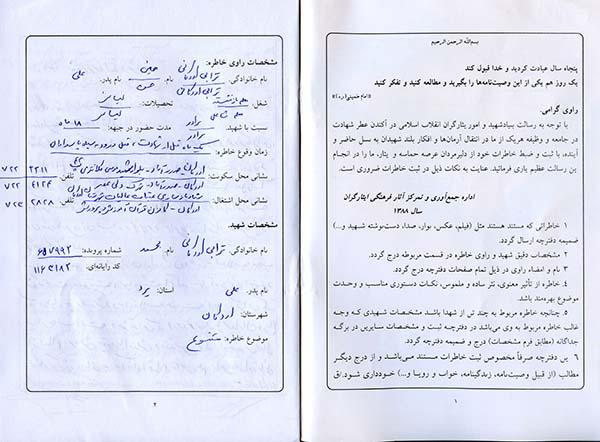 بسم‌الله الرحمن الرحیم
پنجاه سال عبادت کردید و خدا قبول کند
یک روز هم یکی از این وصیت‌نامه‌ها را بگیرید و مطالعه کنید و تفکر کنید
«امام خمینی(ره)»
راوی گرامی.
با توجه به رسالت بنیادشهید و امور ایثارگران انقلاب اسلامی در آکندن عطر شهادت
در جامعه و وظیفه هریک از ما در انتقال آرمان‌ها و افکار بلند شهیدان به نسل حاضر و
آینده، با ثبت و ضبط خاطرات خود از دلیرمردان عرصه حماسه و ایثار، ما را در انجام
این رسالت عظیم یاری فرمائید. عنایت به نکات ذیل در ثبت خاطرات ضروری است.
اداره جمع‌آوری و تمرکز آثار فرهنگی ایثارگران
سال ۱۳۸۸
۱ خاطراتی که مستند هستند مثل (فیلم، عکس، نوار، صدا، دست‌نوشته شهید و...)
ضمیمه دفترچه ارسال گردد.
۲ مشخصات دقیق شهید و راوی خاطره در قسمت مربوطه درج گردد.
۳ نام و امضاء راوی در ذیل تمام صفحات دفترچه درج گردد.
۴ خاطره از تأثیر معنوی، نثر ساده و ملموس، نکات دستوری مناسب و وحدت
موضوع بهره‌مند باشد.
۵ چنانچه خاطره مربوط به چند تن از شهدا باشد مشخصات شهیدی که وجه
غالب خاطره مربوط به وی می‌باشد در دفترچه ثبت و مشخصات سایرین در برگه
جداگانه (مطابق فرم مشخصات) درج و ضمیمه دفترچه گردد.
۶ این دفترچه صرفاً مخصوص ثبت خاطرات مستند می‌باشد و از درج دیگر
مطالب (از قبیل وصیت‌نامه، زندگینامه، خواب و رویا و...) خودداری شود.
۱
مشخصات راوی خاطره:
نام خانوادگی: ترابی اردکانی نام: حسین نام پدر: علی
شغل: تحصیلات: لیسانس
نسبت با شهید: برادر مدت حضور در جبهه: ۱۸ ماه
زمان وقوع خاطره: یک ماه قبل از شهادت
نشانی محل سکونت: اردکان تلفن: ۷۲۲ ۳۲۱۱
اردکان تلفن: ۷۲۲ ۴۱۲۴
نشانی محل اشتغال: ۷۲۳ ۲۸۲۸
اردکان آموزش و پرورش
مشخصات شهید:
نام خانوادگی: ترابی اردکانی نام: محمد شماره پرونده: ۶۵۷۹۹۲
کد رایانه‌ای: ۱۱۶۳۱۸۲
نام پدر: علی استان: یزد
شهرستان: اردکان
موضوع خاطره: متنوع
۲